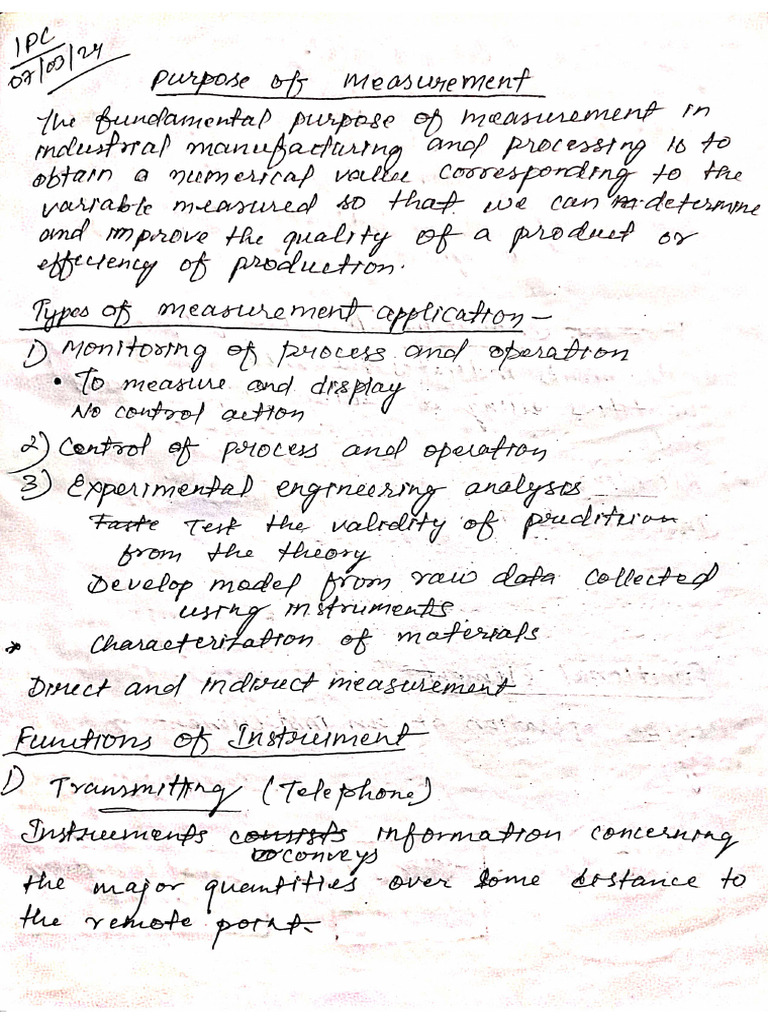 IPC
07/03/24
Purpose of measurement
The fundamental purpose of measurement in
industrial manufacturing and processing is to
obtain a numerical value corresponding to the
variable measured so that we can determine
and improve the quality of a product or
efficiency of production.
Types of measurement application -
1) Monitoring of process and operation
• To measure and display
No control action
2) Control of process and operation
3) Experimental engineering analysis
Taste Test the validity of predition
from the theory
Develop model from raw data collected
using instruments
* Characterization of materials
Direct and indirect measurement
Functions of Instrument
1) Transmitting (Telephone)
Instruments consists information concerning
conveys
the major quantities over some distance to
the remote point.